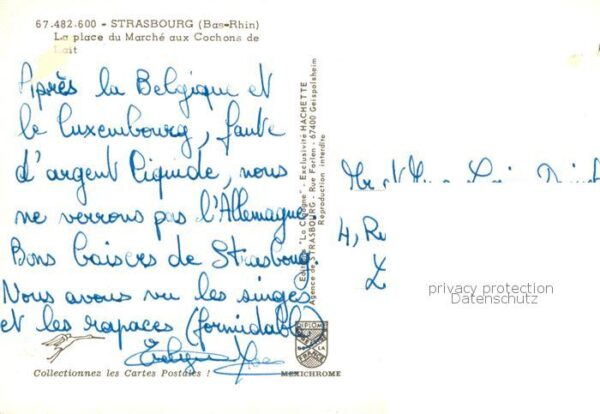 67.482.600 - STRASBOURG (Bas-Rhin)
La place du Marché aux Cochons de
Lait
Après la Belgique et
le Luxembourg, faute
d'argent liquide, nous
ne verrons pas l'Allemagne.
Bons baisers de Strasbourg.
Nous avons vu les singes
et les rapaces (formidable)
Collectionnez les Cartes Postales !
Editions "La Cigogne" - Exclusivité HACHETTE
Agence de STRASBOURG - Rue Forlen - 67400 Geispolsheim
Reproduction interdite
MEXICHROME
4, Ru
privacy protection
Datenschutz